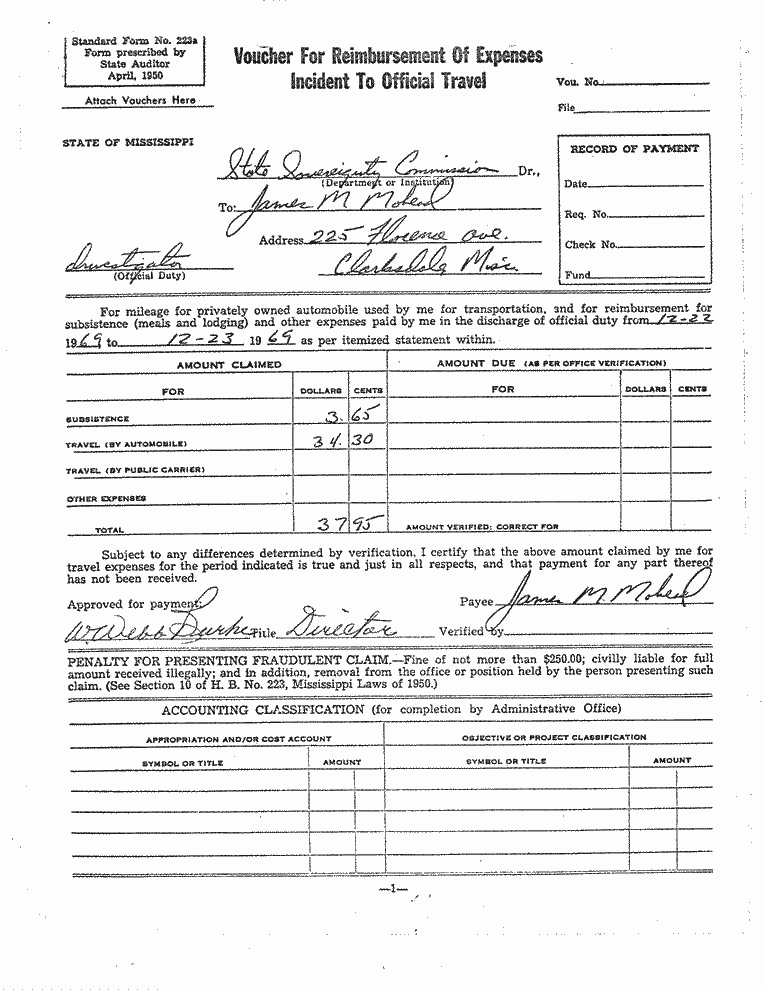 Standard Form No. 223a
Form prescribed by
State Auditor
April, 1950
Attach Vouchers Here
Voucher For Reimbursement Of Expenses
Incident To Official Travel
Vou. No.
File
STATE OF MISSISSIPPI
RECORD OF PAYMENT
Date
Req. No.
Check No.
Fund
State Sovereignty Commission Dr.,
(Department or Institution)
To: James M Mohead
Address 225 Florence Ave.
Investigator Clarksdale Miss.
(Official Duty)
For mileage for privately owned automobile used by me for transportation, and for reimbursement for
subsistence (meals and lodging) and other expenses paid by me in the discharge of official duty from 12-22
1969 to 12-23 1969 as per itemized statement within.
AMOUNT CLAIMED AMOUNT DUE (AS PER OFFICE VERIFICATION)
FOR DOLLARS CENTS FOR DOLLARS CENTS
SUBSISTENCE 3. 65
TRAVEL (BY AUTOMOBILE) 34. 30
TRAVEL (BY PUBLIC CARRIER)
OTHER EXPENSES
TOTAL 37 95 AMOUNT VERIFIED; CORRECT FOR
Subject to any differences determined by verification, I certify that the above amount claimed by me for
travel expenses for the period indicated is true and just in all respects, and that payment for any part thereof
has not been received.
Approved for payment: Payee James M. Mohead
W. Webb Burke Title Director Verified by
PENALTY FOR PRESENTING FRAUDULENT CLAIM.—Fine of not more than $250.00; civilly liable for full
amount received illegally; and in addition, removal from the office or position held by the person presenting such
claim. (See Section 10 of H. B. No. 223, Mississippi Laws of 1950.)
ACCOUNTING CLASSIFICATION (for completion by Administrative Office)
APPROPRIATION AND/OR COST ACCOUNT OBJECTIVE OR PROJECT CLASSIFICATION
SYMBOL OR TITLE AMOUNT SYMBOL OR TITLE AMOUNT
—1—